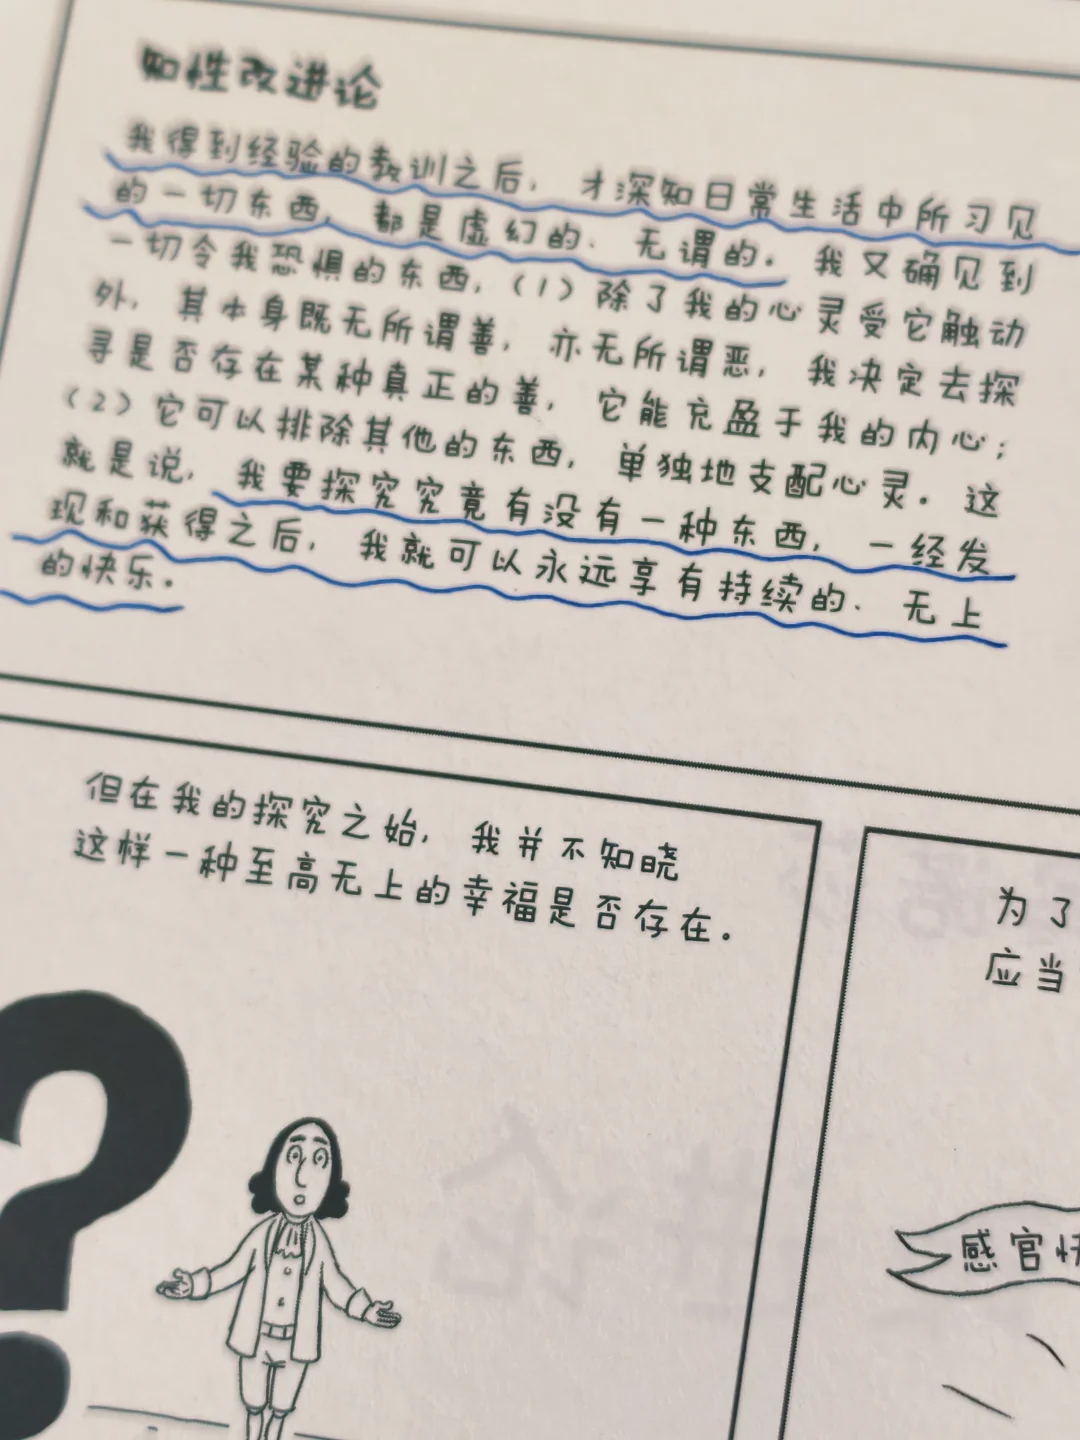 知性改进论
我得到经验的教训之后，才深知日常生活中所习见
的一切东西，都是虚幻的、无谓的。我又确见到
一切令我恐惧的东西，（1）除了我的心灵受它触动
外，其本身既无所谓善，亦无所谓恶，我决定去探
寻是否存在某种真正的善，它能充盈于我的内心；
（2）它可以排除其他的东西，单独地支配心灵。这
就是说，我要探究究竟有没有一种东西，一经发
现和获得之后，我就可以永远享有持续的、无上
的快乐。
但在我的探究之始，我并不知晓
这样一种至高无上的幸福是否存在。
?
为了
应当
感官快